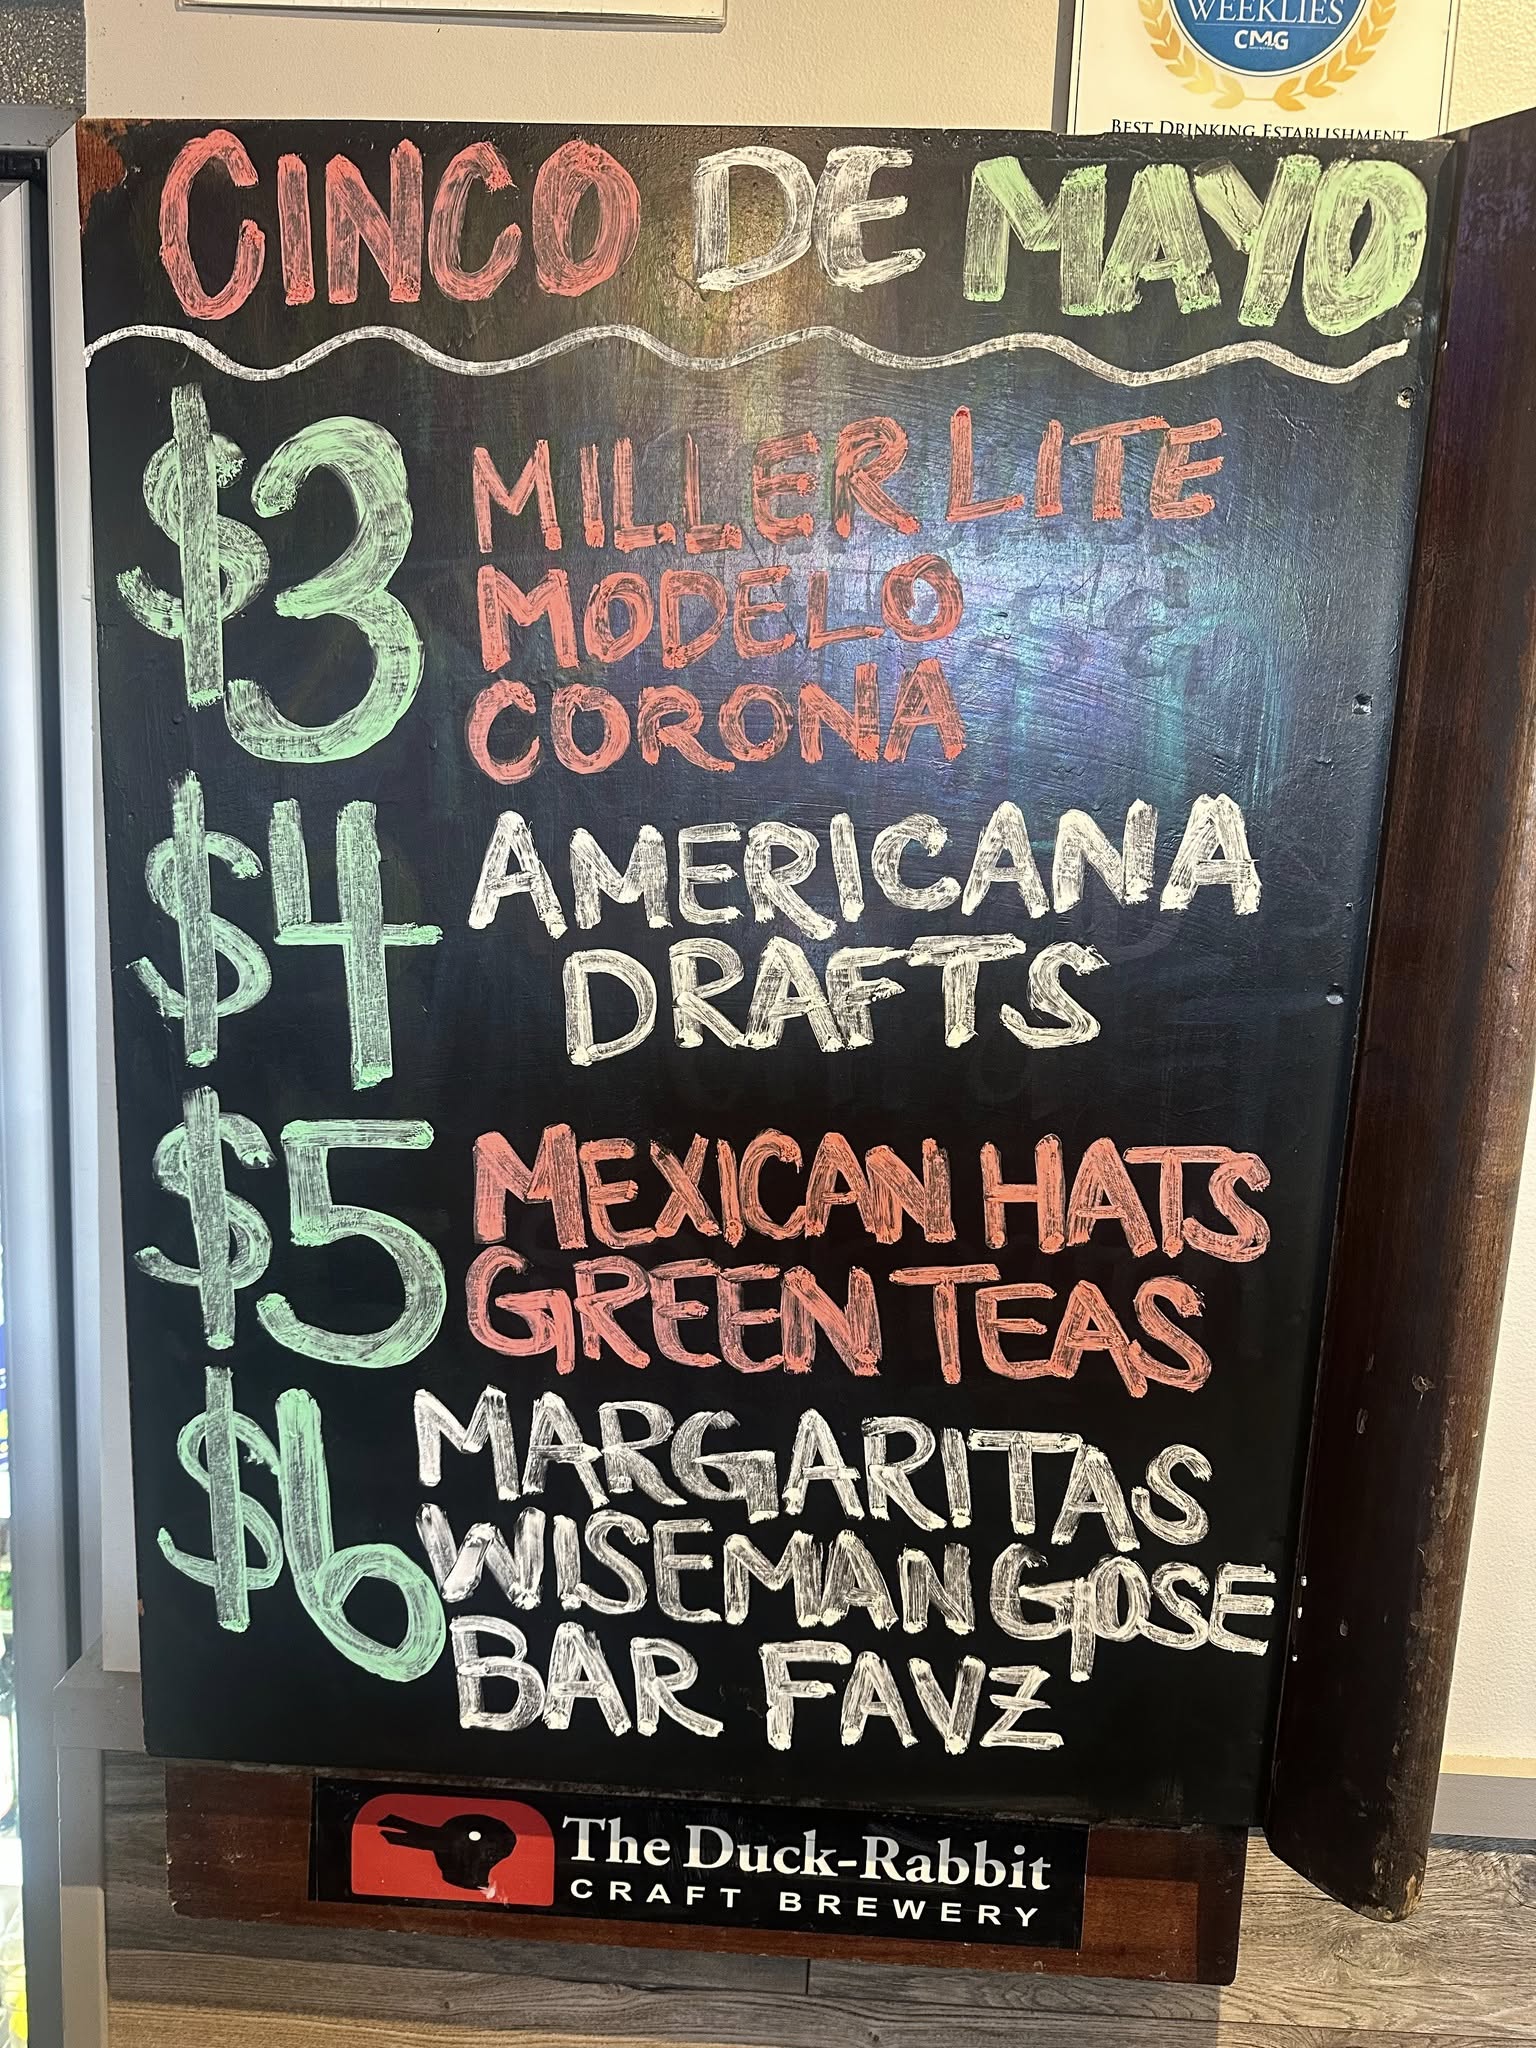 WEEKLIES
CMG
BEST DRINKING ESTABLISHMENT
CINCO DE MAYO
$3 MILLER LITE
MODELO
CORONA
$4 AMERICANA
DRAFTS
$5 MEXICAN HATS
GREEN TEAS
$6 MARGARITAS
WISEMAN GOSE
BAR FAVZ
The Duck-Rabbit
CRAFT BREWERY